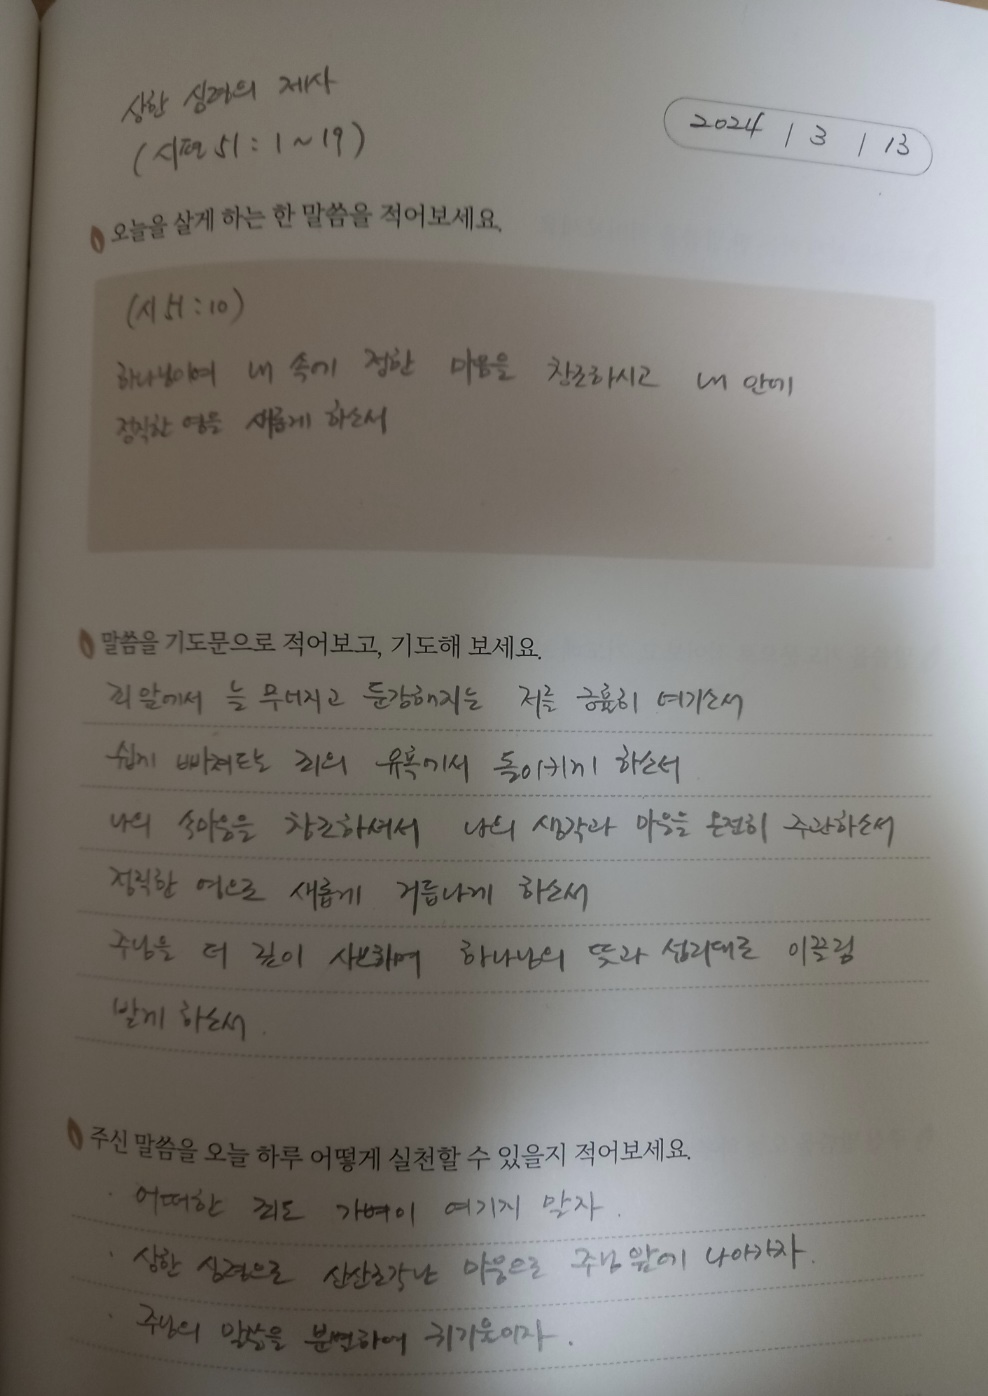 상한 심령의 제사
(시편 51 : 1 ~ 19)
2024 / 3 / 13
오늘을 살게 하는 한 말씀을 적어보세요.
(시 51 : 10)
하나님이여 내 속에 정한 마음을 창조하시고 내 안에
정직한 영을 새롭게 하소서
말씀을 기도문으로 적어보고, 기도해 보세요.
죄 앞에서 늘 무너지고 둔감해지는 저를 긍휼히 여기소서
쉽게 빠져드는 죄의 유혹에서 돌이키게 하소서
나의 속마음을 창조하셔서 나의 생각과 마음을 온전히 주관하소서
정직한 영으로 새롭게 거듭나게 하소서
주님을 더 깊이 사모하며 하나님의 뜻과 섭리대로 이끌림
받게 하소서.
주신 말씀을 오늘 하루 어떻게 실천할 수 있을지 적어보세요.
· 어떠한 죄도 가벼이 여기지 말자.
· 상한 심령으로 산산조각난 마음으로 주님 앞에 나아가자.
· 주님의 말씀을 분변하여 귀기울이자.